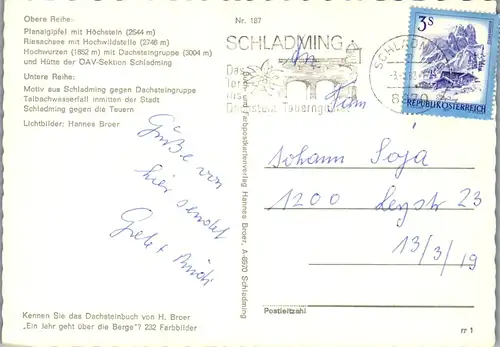 Obere Reihe:
Planaigipfel mit Höchstein (2544 m)
Riesachsee mit Hochwildstelle (2746 m)
Hochwurzen (1852 m) mit Dachsteingruppe (3004 m)
und Hütte der ÖAV-Sektion Schladming
Untere Reihe:
Motiv aus Schladming gegen Dachsteingruppe
Talbachwasserfall inmitten der Stadt
Schladming gegen die Tauern
Lichtbilder: Hannes Broer
Grüße von
hier sendet
Kennen Sie das Dachsteinbuch von H. Broer
„Ein Jahr geht über die Berge"? 232 Farbbilder
Nr. 187
SCHLADMING
Das
Dachstein Tauerngebiet
Farbpostkartenverlag Hannes Broer, A-8970 Schladming
SCHLADMING
8970
3 S
REPUBLIK ÖSTERREICH
Fam
Johann Soja
1200 Leystr 23
13/3/19
Postleitzahl
rr 1